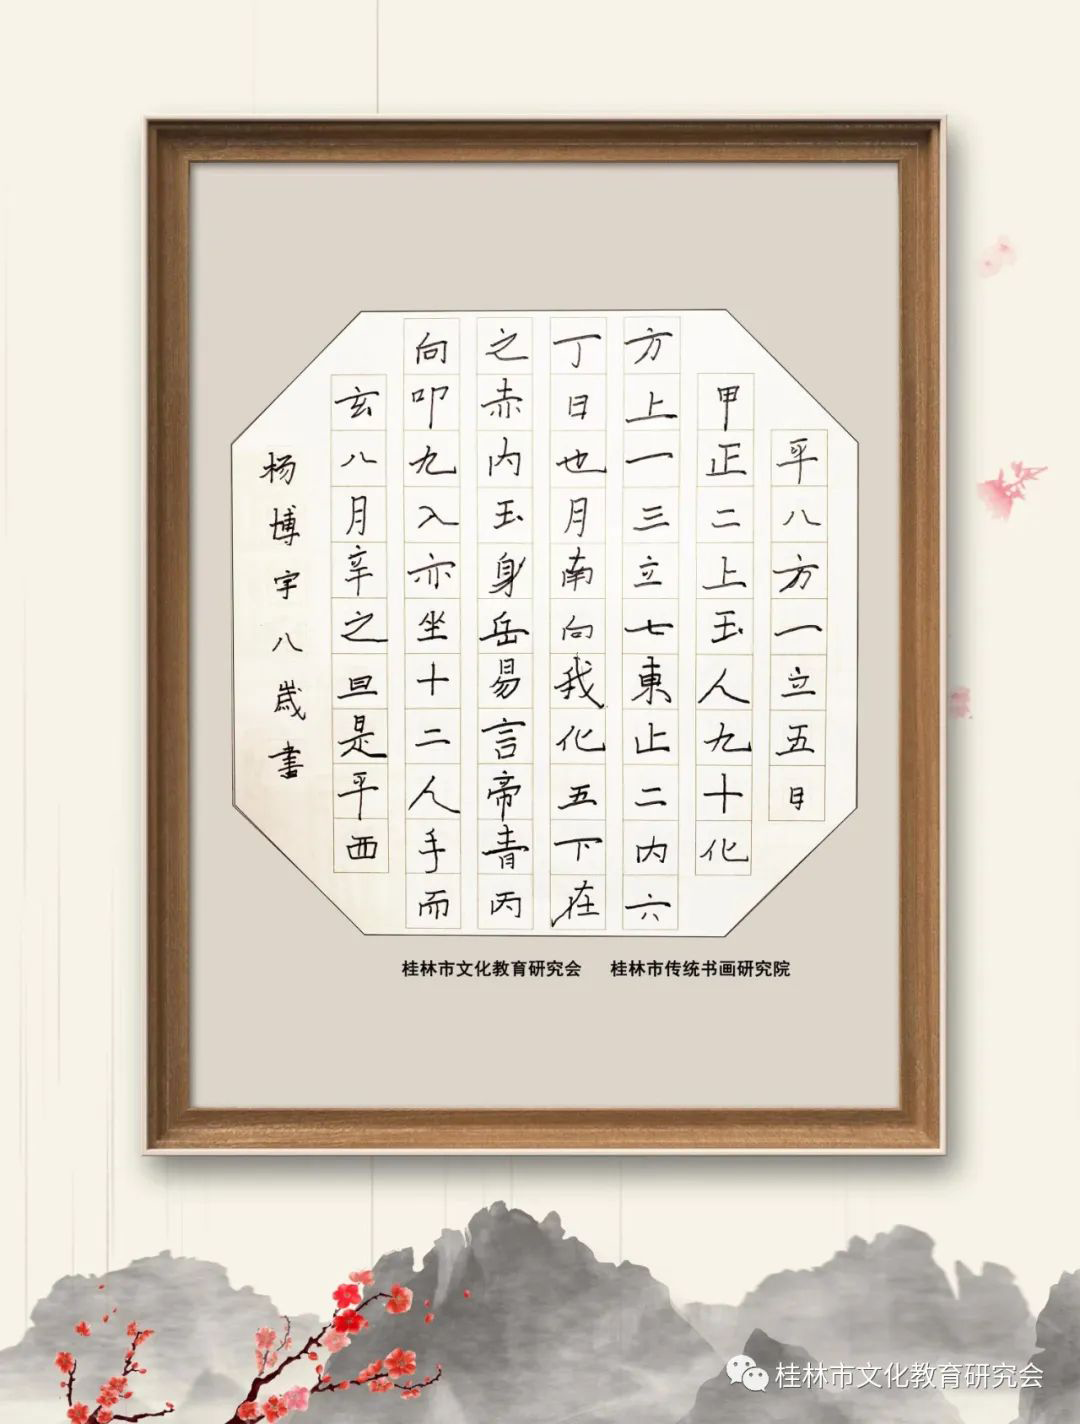 平八方一立五日
甲正二上玉人九十化
方上一三立七東止二内六
丁日也月南向我化五下在
之赤内玉身岳易言帝青丙
向叩九入亦坐十二人手而
玄八月辛之旦是平西
杨博宇八歳書
桂林市文化教育研究会 桂林市传统书画研究院
桂林市文化教育研究会